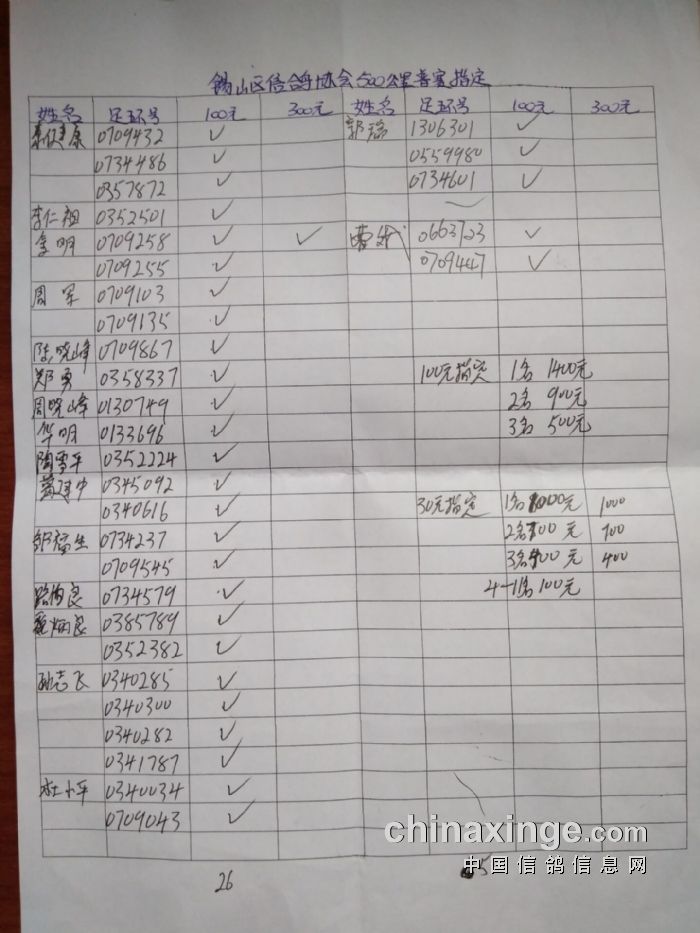 锡山区信鸽协会500公里普赛指定
姓名 足环号 100元 300元 姓名 足环号 100元 300元
秦健康 0709432 ✓ 郭 1306301 ✓
0734486 ✓ 0559980 ✓
0357872 ✓ 0734601 ✓
李仁祖 0352501 ✓
李明 0709258 ✓ ✓ 曹 0663723 ✓
0709255 ✓ 0709447 ✓
周军 0709103 ✓
0709135 ✓
陆晓峰 0709867 ✓
郑勇 0358337 ✓ 100元指定 1名 1400元
周晓峰 0130749 ✓ 2名 900元
华明 0133696 ✓ 3名 500元
陶雪平 0352224 ✓
黄建中 0345092 ✓
0340616 ✓ 30元指定 1名1000元 1000
邹福生 0734237 ✓ 2名700元 700
0709545 ✓ 3名400元 400
良 0734579 ✓ 4-1名100元
炳良 0385789 ✓
0352382 ✓
孙志飞 0340285 ✓
0340300 ✓
0340282 ✓
0341787 ✓
杜小平 0340034 ✓
0709043 ✓
26 5
chinaxinge.com
中国信鸽信息网